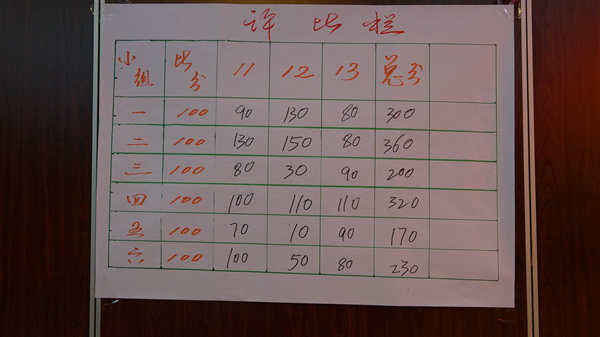 评比栏
小组 比分 11 12 13 总分
一 100 90 130 80 300
二 100 130 150 80 360
三 100 80 30 90 200
四 100 100 110 110 320
五 100 70 10 90 170
六 100 100 50 80 230